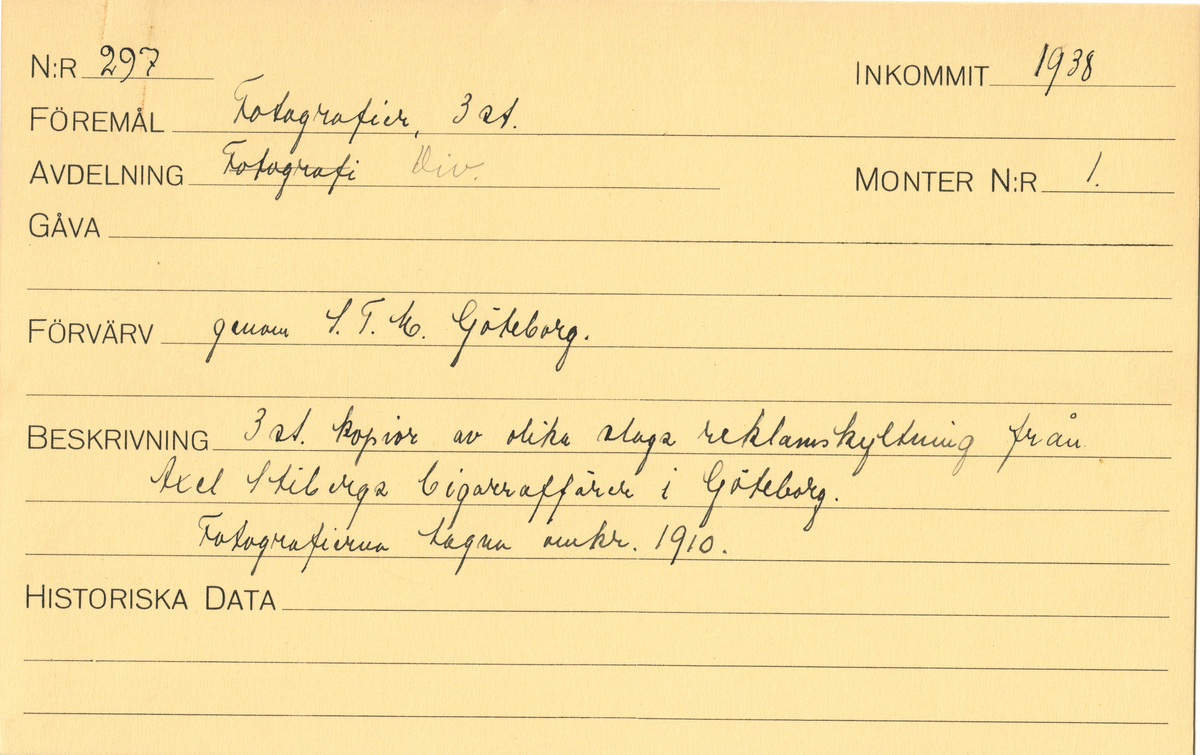 N:R 297 INKOMMIT 1938
FÖREMÅL Fotografier, 3 st.
AVDELNING Fotografi Div. MONTER N:R 1.
GÅVA
FÖRVÄRV genom S.T.M. Göteborg.
BESKRIVNING 3 st. kopior av olika slags reklamskyltning från
Axel Stibergs Cigarraffärer i Göteborg.
Fotografierna tagna omkr. 1910.
HISTORISKA DATA